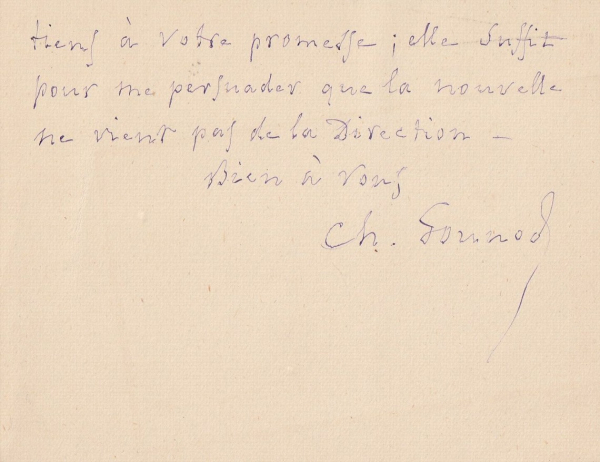 tiens à votre promesse ; elle suffit
pour me persuader que la nouvelle
ne vient pas de la Direction —
Bien à vous
Ch. Gounod